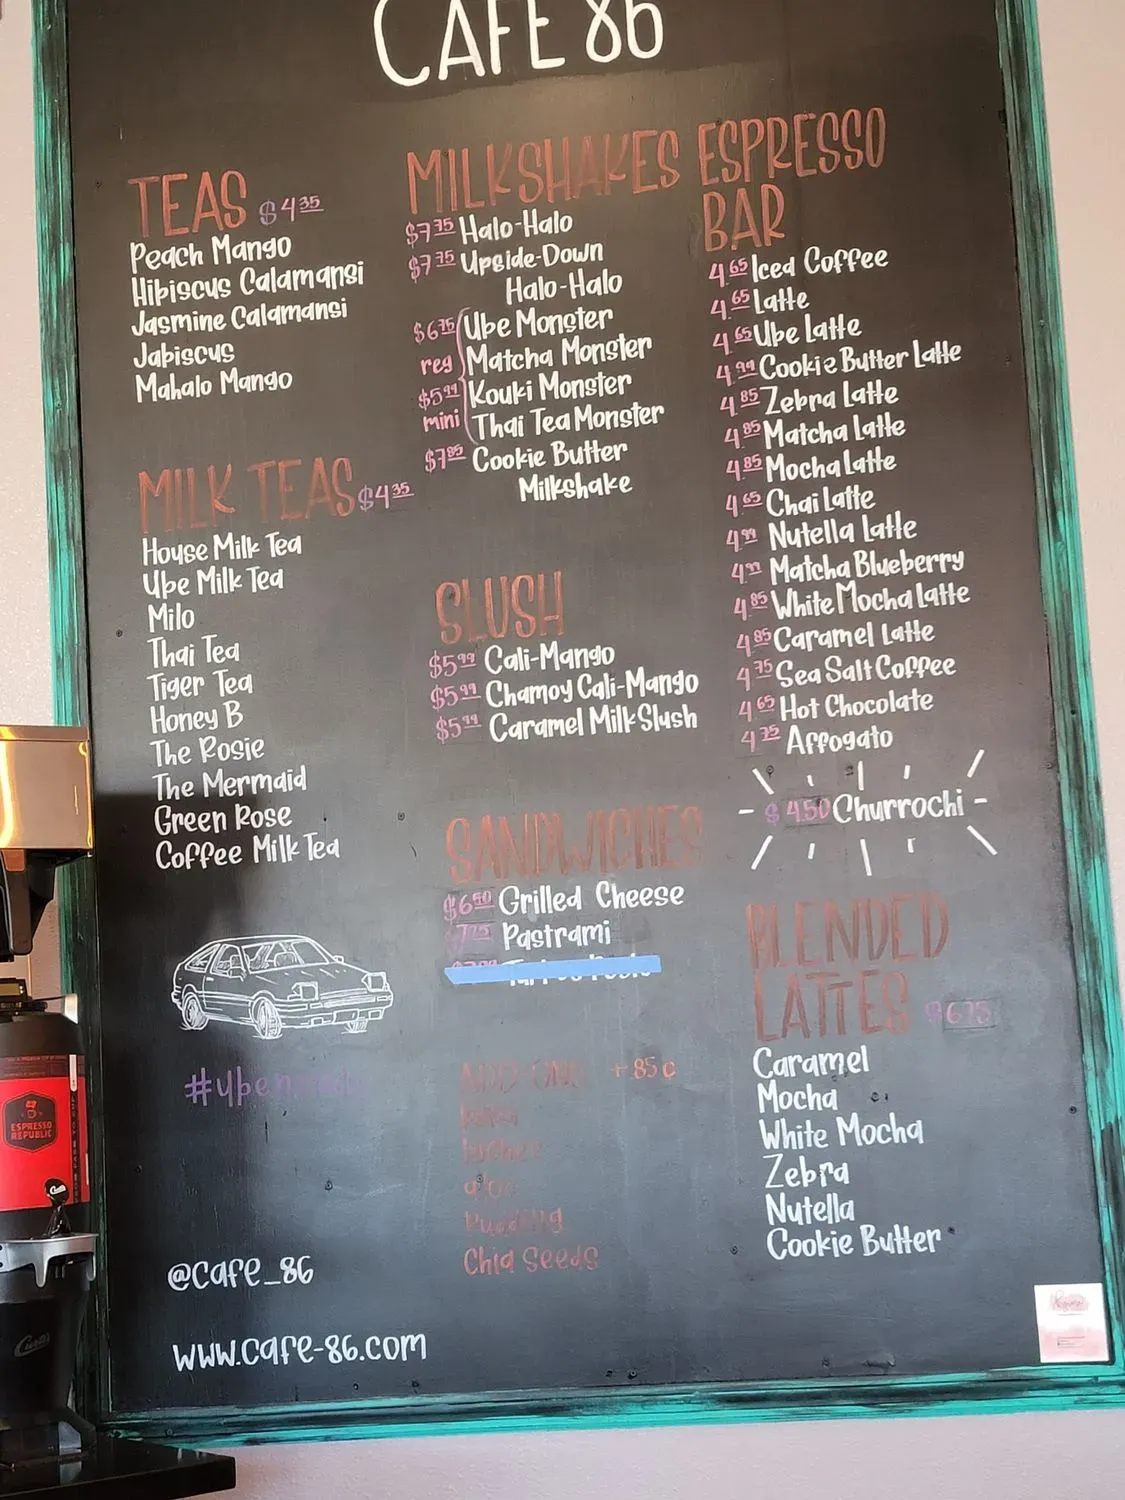 CAFE 86
TEAS $4.35
Peach Mango
Hibiscus Calamansi
Jasmine Calamansi
Jabiscus
Mahalo Mango
MILK TEAS $4.35
House Milk Tea
Ube Milk Tea
Milo
Thai Tea
Tiger Tea
Honey B
The Rosie
The Mermaid
Green Rose
Coffee Milk Tea
@cafe_86
www.cafe-86.com
MILKSHAKES
$7.75 Halo-Halo
$7.75 Upside-Down
Halo-Halo
$6.75 Ube Monster
reg Matcha Monster
$5.99 Kouki Monster
mini Thai Tea Monster
$7.85 Cookie Butter
Milkshake
SLUSH
$5.99 Cali-Mango
$5.99 Chamoy Cali-Mango
$5.99 Caramel Milk Slush
SANDWICHES
$6.50 Grilled Cheese
Pastrami
ADD-ONS +85¢
Pudding
Chia Seeds
ESPRESSO
BAR
4.65 Iced Coffee
4.65 Latte
4.65 Ube Latte
4.99 Cookie Butter Latte
4.85 Zebra Latte
4.85 Matcha Latte
4.85 Mocha Latte
4.65 Chai Latte
4.99 Nutella Latte
4.99 Matcha Blueberry
4.85 White Mocha Latte
4.85 Caramel Latte
4.75 Sea Salt Coffee
4.65 Hot Chocolate
4.75 Affogato
$4.50 Churrochi
BLENDED
LATTES $6.75
Caramel
Mocha
White Mocha
Zebra
Nutella
Cookie Butter
ESPRESSO
REPUBLIC
Curtis